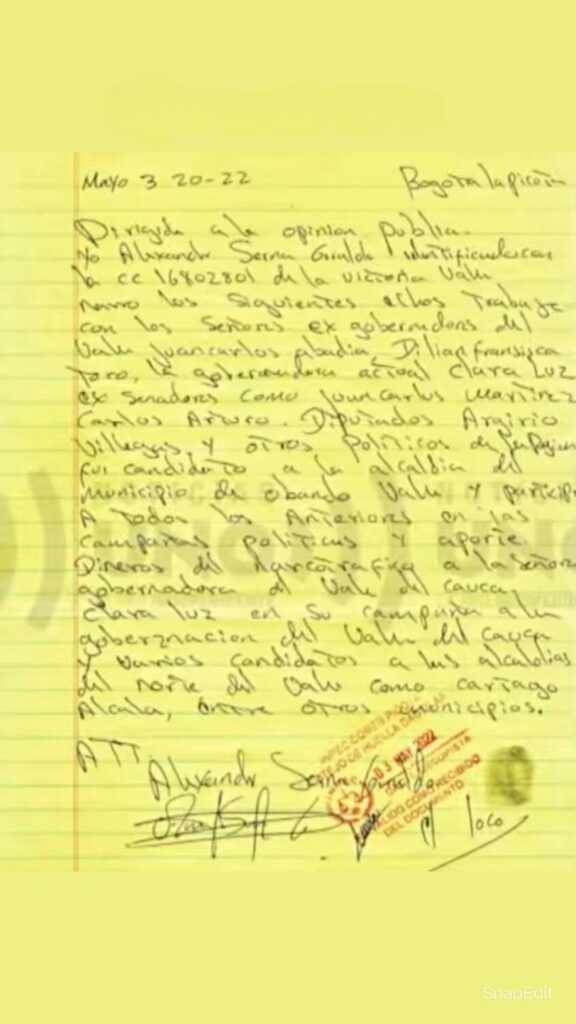 Mayo 3 20-22 Bogota la picota
Dirigida a la opinion publica.
Yo Alexandr Serna Giraldo identificado con
la cc 16802801 de la victoria Valle
narro los siguientes echos trabaje
con los Señores ex gobernadores del
Valle Juancarlos abadia, Dilian fransisca
toro, la gobernadora actual Clara Luz
ex Senadores como Juancarlos Martinez
Carlos Arturo. Diputados Argirio
Villegas, y otros Politicos de la
fui candidato a la alcaldia del
Municipio de obando Valle y participe
A todos los Anteriores en las
campañas politicas y aporte.
Dineros del narcotrafico a la Señora
gobernadora del Valle del cauca
Clara luz en su campaña a la
gobernacion del Valle del cauca
y varios candidatos a las alcaldias
del norte del Valle como cartago
Alcala, entre otros municipios.
ATT Alexandr Serna Giraldo
el loco
INPEC COMEB
DE HUELLA
03 MAY 2022
VALIDO COMO RECIBIDO
DEL DOCUMENTO
SnapEdit